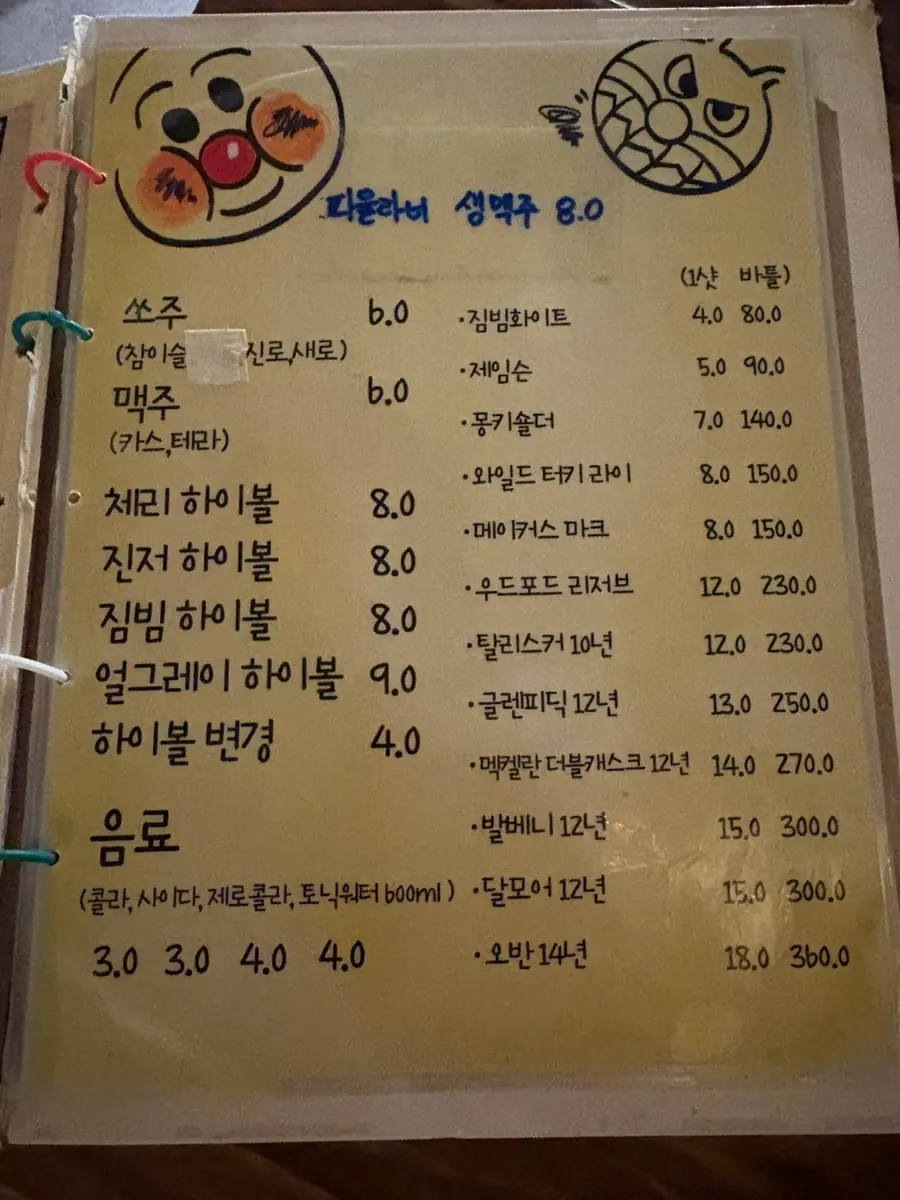 피울라너 생맥주 8.0
쏘주 6.0
(참이슬 진로,새로)
맥주 6.0
(카스,테라)
체리 하이볼 8.0
진저 하이볼 8.0
짐빔 하이볼 8.0
얼그레이 하이볼 9.0
하이볼 변경 4.0
음료
(콜라, 사이다, 제로콜라, 토닉워터 600ml)
3.0 3.0 4.0 4.0
(1샷 바틀)
·짐빔화이트 4.0 80.0
·제임슨 5.0 90.0
·몽키숄더 7.0 140.0
·와일드 터키 라이 8.0 150.0
·메이커스 마크 8.0 150.0
·우드포드 리저브 12.0 230.0
·탈리스커 10년 12.0 230.0
·글렌피딕 12년 13.0 250.0
·멕켈란 더블캐스크 12년 14.0 270.0
·발베니 12년 15.0 300.0
·달모어 12년 15.0 300.0
·오반 14년 18.0 360.0